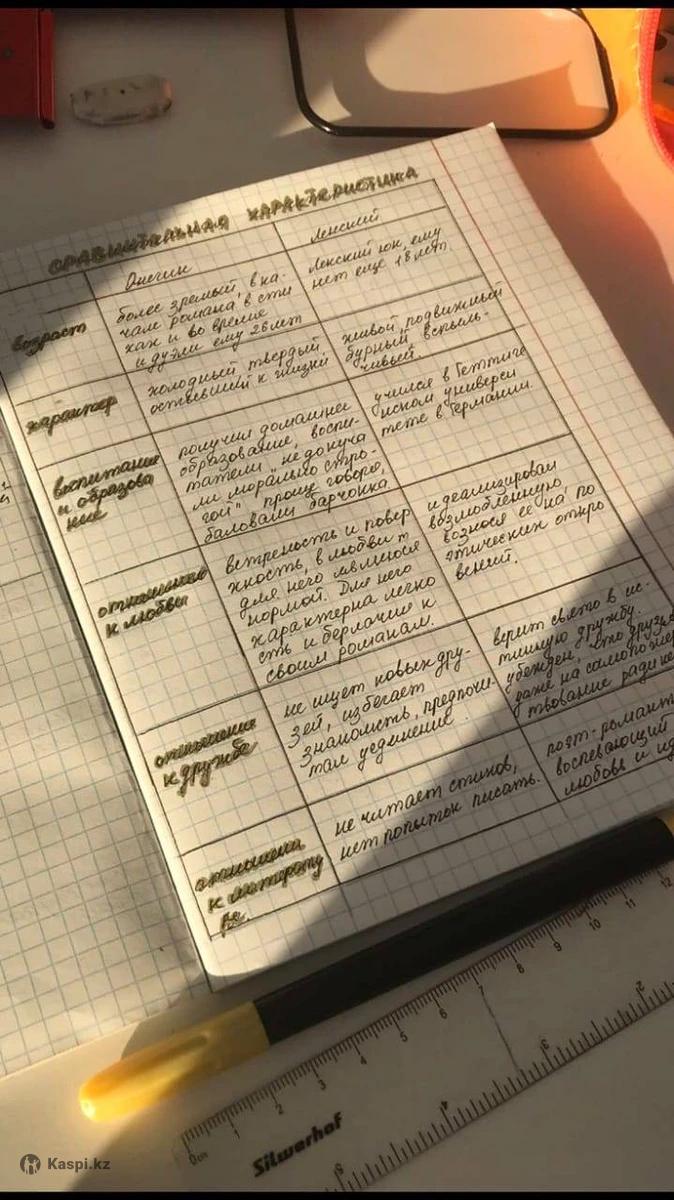 СРАВНИТЕЛЬНАЯ ХАРАКТЕРИСТИКА
Онегин
Ленский
возраст
более зрелый, в на-
чале романа в сти
хах и во время
дуэли ему 26 лет
Ленский юн, ему
нет еще 18 лет.
характер
холодный твердый
остывший к жизни
живой, подвижный
бурный, вспыль-
чивый.
воспитание
и образова
ние
получил домашнее
образование, воспи-
татели "не докуча
ли моралью стро-
гой" проще говоря,
баловали барчонка
учился в Геттинге
нском универси
тете в Германии.
отношение
к любви
ветреность и повер
хность, в любви
для него являлося
нормой. Для него
характерна легко
сть и
своим романам.
идеализировал
возлюбленную,
вознося ее на по
этических откро
вений.
отношения
к дружбе
не ищет новых дру-
зей, избегает
знакомств, предпочи-
тал уединение.
верит свято в ис-
тинную дружбу.
убежден, что друзья
даже на самопожер
твование ради не
отношения
к литерату
ре.
не читает стихов,
нет попыток писать.
поэт-романт
воспевающий
любовь и ид
0см 1 2 3 4 5 6 7 8 9 10 11 12
Silwerhof
5 4 3 2
Kaspi.kz